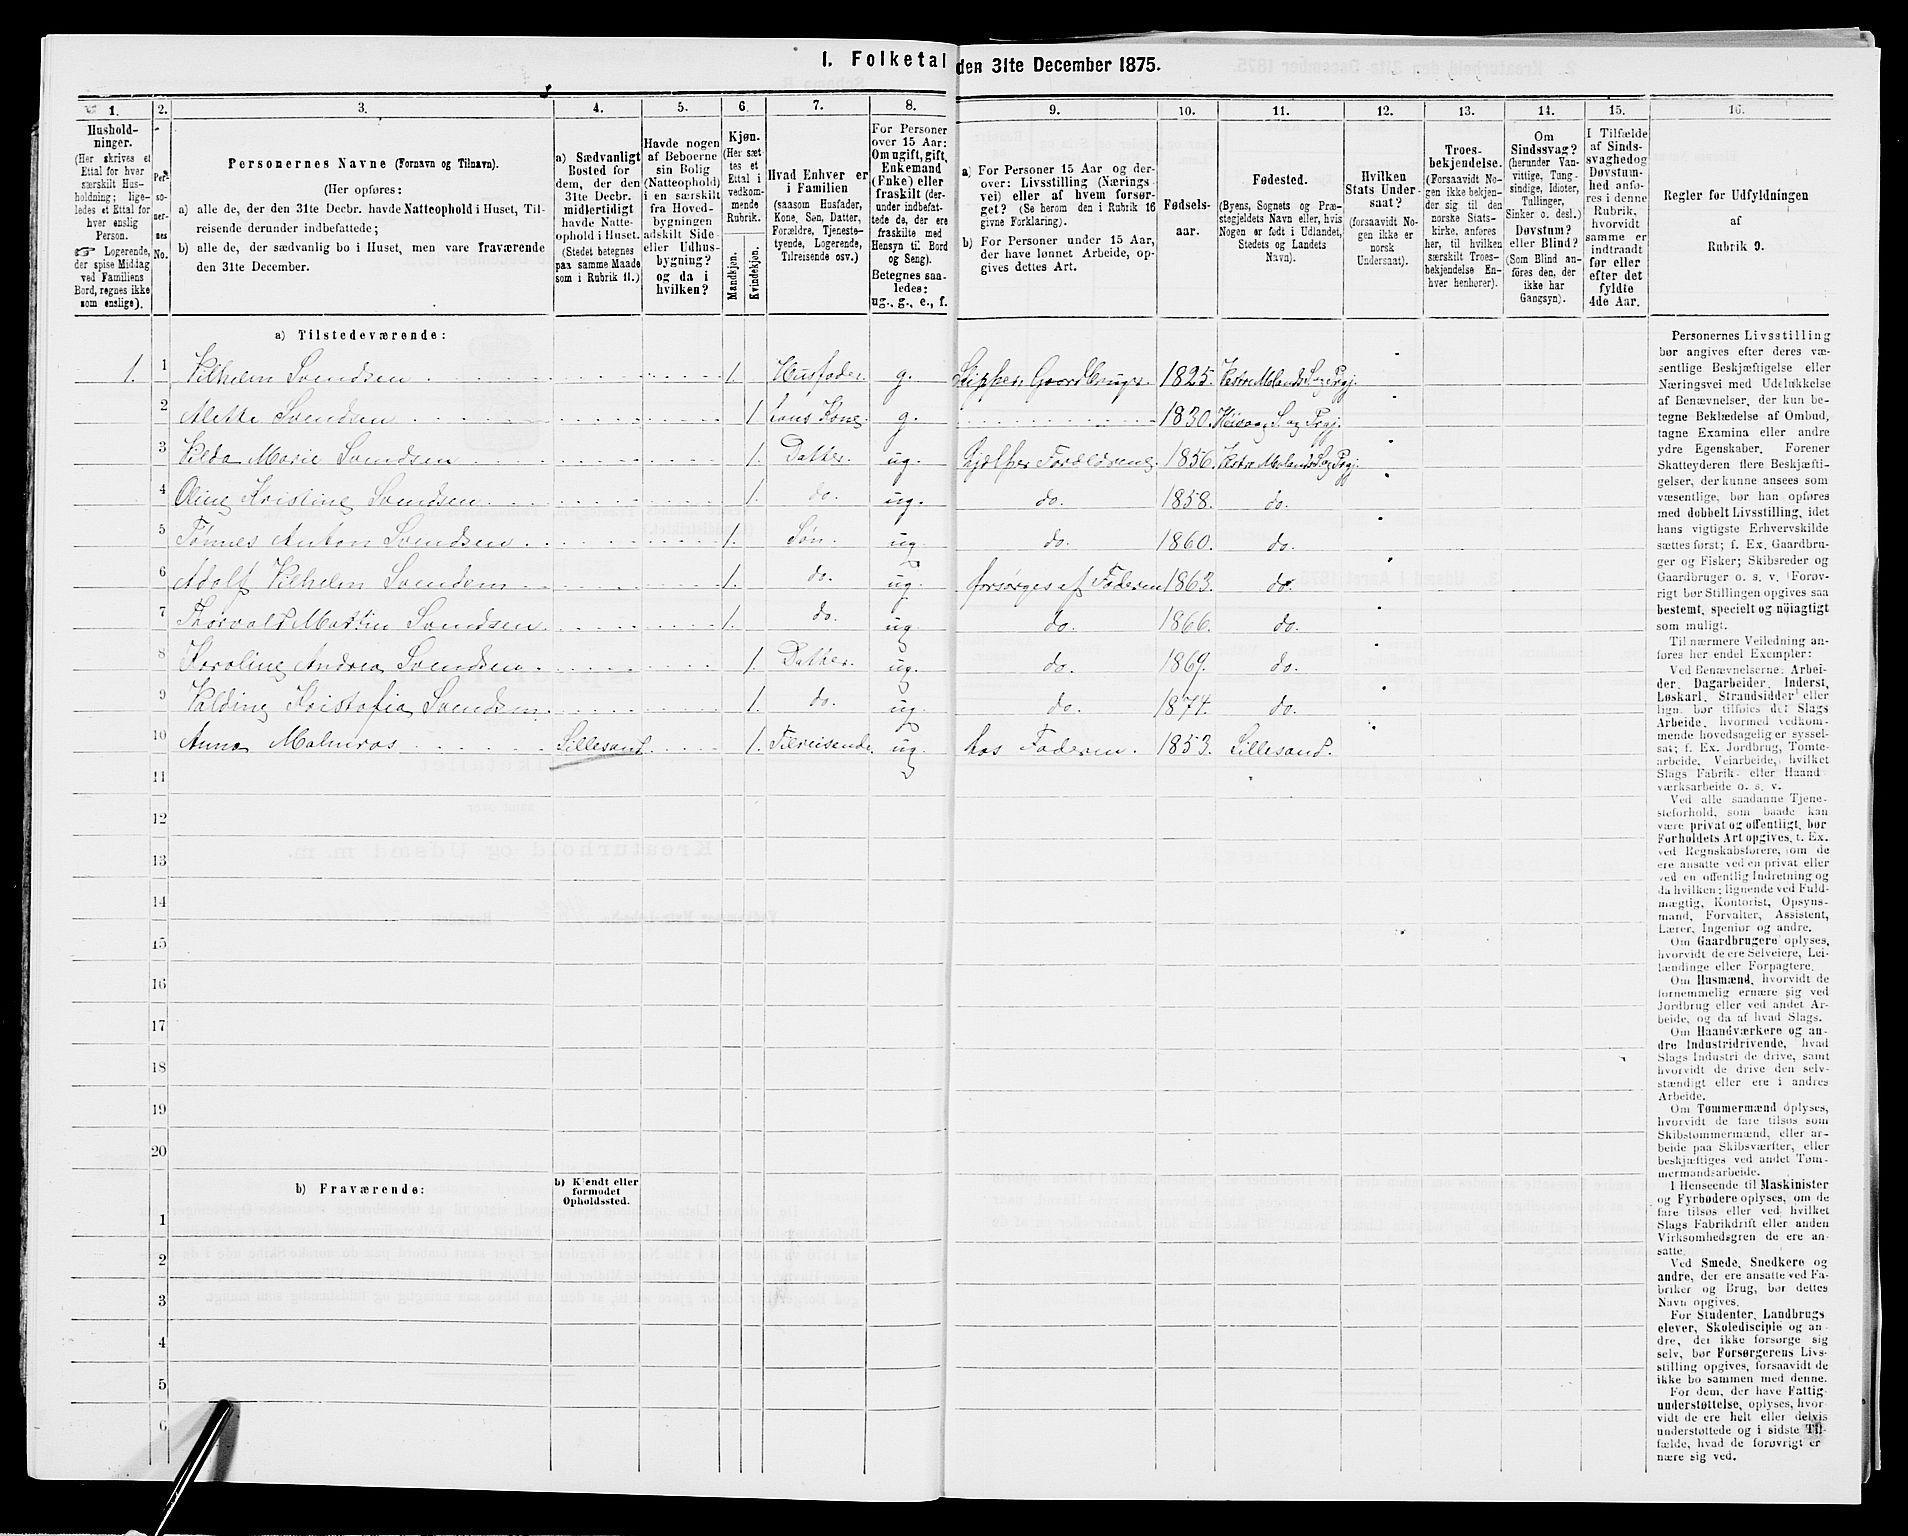 1. Folketal den 31te December 1875.
1. 2. 3. 4. 5. 6. 7. 8. 9. 10. 11. 12. 13. 14. 15. 16.
Hushold-
ninger.
(Her skrives et
Ettal for hver
særskilt Hus-
holdning; lige-
ledes et Ettal for
hver enslig
Person.
☞ Logerende,
der spise Middag
ved Familiens
Bord, regnes ikke
som enslige).
Per-
so-
ner-
nes
No.
Personernes Navne (Fornavn og Tilnavn).
(Her opføres:
a) alle de, der den 31te Decbr. havde Natteophold i Huset, Til-
reisende derunder indbefattede;
b) alle de, der sædvanlig bo i Huset, men vare fraværende
den 31te December.
a) Sædvanligt
Bosted for
dem, der den
31te Decbr.
midlertidigt
havde Natte-
ophold i Huset.
(Stedet betegnes
paa samme Maade
som i Rubrik 11.)
Havde nogen
af Beboerne
sin Bolig
(Natteophold)
i en særskilt
fra Hoved-
bygningen
adskilt Side-
eller Udhus-
bygning?
og da i
hvilken?
Kjøn.
(Her sæt-
tes et
Ettal i
vedkom-
mende
Rubrik.
Mandkjøn.
Kvindekjøn.
Hvad Enhver er
i Familien
(saasom Husfader,
Kone, Søn, Datter,
Forældre, Tjeneste-
tyende, Logerende,
Tilreisende osv.)
For Personer
over 15 Aar:
Om ugift, gift,
Enkemand
(Enke) eller
fraskilt (der-
under indbefat-
tede de, der ere
fraskilte med
Hensyn til Bord
og Seng).
Betegnes saa-
ledes:
ug., g., e., f.
a) For Personer 15 Aar og der-
over: Livsstilling (Nærings-
vei) eller af hvem forsør-
get? (Se herom den i Rubrik 16
givne Forklaring).
b) For Personer under 15 Aar,
der have lønnet Arbeide, op-
gives dettes Art.
Fødsels-
aar.
Fødested.
(Byens, Sognets og Præ-
stegjeldets Navn eller, hvis
Nogen er født i Udlandet,
Stedets og Landets
Navn).
Hvilken
Stats Under-
saat?
(forsaavidt No-
gen ikke er
norsk
Undersaat).
Troes-
bekjendelse.
(Forsaavidt No-
gen ikke bekjen-
der sig til den
norske Stats-
kirke, anføres
her, til hvilken
særskilt Troes-
bekjendelse En-
hver henhører).
Om
Sindssvag?
(herunder Van-
vittige, Tung-
sindige, Idioter,
Tullinger,
Sinker o. desl.)
Døvstum?
eller Blind?
(Som Blind an-
føres den, der
ikke har
Gangsyn).
I Tilfælde
af Sinds-
svaghed og
Døvstum-
hed anfø-
res i denne
Rubrik,
hvorvidt
samme er
indtraadt
før eller
efter det
fyldte
4de Aar.
Regler for Udfyldningen
af
Rubrik 9.
a) Tilstedeværende:
1. 1 Vilhelm Svendsen 1. Husfader g. Skipper Gaardbruger 1825. Vestre Molands S. og Prgj.
2 Mette Svendsen 1 hans Kone g. 1830. Høivaag S. og Prgj.
3 Velda Marie Svendsen 1. Datter ug. hjælper Forældrene 1856. Vestre Molands S. og Prgj.
4 Oline Kristine Svendsen 1. do. ug. do. 1858. do.
5 Tønnes Anton Svendsen 1. Søn. ug. do. 1860. do.
6 Adolf Vilhelm Svendsen 1. do. ug. forsørges af Faderen 1863. do.
7 Thorvald Martin Svendsen 1. do. ug. do. 1866. do.
8 Karoline Andrea Svendsen 1. Datter. ug. do. 1869. do.
9 Valdine Kristofia Svendsen 1. do. ug. do. 1874. do.
10 Anna Malmros Lillesand 1. Tilreisende. ug. hos Faderen. 1853. Lillesand.
11
12
13
14
15
16
17
18
19
20
b) Fraværende:
b) Kjendt eller
formodet
Opholdssted.
1
2
3
4
5
6
Personernes Livsstilling
bør angives efter deres væ-
sentlige Beskjæftigelse eller
Næringsvei med Udelukkelse
af Benævnelser, der kun be-
tegne Beklædelse af Ombud,
tagne Examina eller andre
ydre Egenskaber. Forener
Skatteyderen flere Beskjæfti-
gelser, der kunne ansees som
væsentlige, bør han opføres
med dobbelt Livsstilling, idet
hans vigtigste Erhvervskilde
sættes først; f. Ex. Gaardbru-
ger og Fisker; Skibsreder og
Gaardbruger o. s. v. (Forøv-
rigt bør Stillingen opgives saa
bestemt, specielt og nøiagtigt
som muligt.
Til nærmere Veiledning an-
føres her endel Exempler:
Ved Benævnelserne: Arbei-
der, Dagarbeider, Inderst,
Løskarl, Strandsidder eller
lign. bør tilføies det Slags
Arbeide, hvormed vedkom-
mende hovedsagelig er syssel-
sat; f. Ex. Jordbrug, Tomte-
arbeide, Veiarbeide, hvilket
Slags Fabrik- eller Haand-
værksarbeide o. s. v.
Ved alle saadanne Tjene-
steforhold, som baade kan
være privat og offentligt, bør
Forholdets Art opgives, t. Ex.
ved Regnskabsførere, om de
ere ansatte ved en privat eller
ved en offentlig Indretning og
da hvilken; lignende ved Fuld-
mægtig, Kontorist, Opsyns-
mand, Forvalter, Assistent,
Lærer, Ingeniør og andre.
Om Gaardbrugere oplyses,
hvorvidt de ere Selveiere, Lei-
lændinge eller Forpagtere.
Om Husmænd, hvorvidt de
fornemmelig ernære sig ved
Jordbrug eller ved andet Ar-
beide, og da af hvad Slags.
Om Haandværkere og an-
dre Industridrivende, hvad
Slags Industri de drive, samt
hvorvidt de drive den selv-
stændigt eller ere i andres
Arbeide.
Om Tømmermænd oplyses,
hvorvidt de fare tilsøs som
Skibstømmermænd, eller ar-
beide paa Skibsværfter, eller
beskjæftiges ved andet Tøm-
mermandsarbeide.
I Henseende til Maskinister
og Fyrbødere oplyses, om de
fare tilsøs eller ved hvilket
Slags Fabrikdrift eller anden
Virksomhedsgren de ere an-
satte.
Ved Smede, Snedkere og
andre, der ere ansatte ved Fa-
briker og Brug, bør dettes
Navn opgives.
For Studenter, Landbrugs-
elever, Skoledisciple og an-
dre, der ikke forsørge sig
selv, bør Forsørgerens Livs-
stilling opgives, forsaavidt de
ikke bo sammen med denne.
For dem, der have Fattig-
understøttelse, oplyses, hvor-
vidt de ere helt eller delvis
understøttede og i sidste Til-
fælde, hvad de forøvrigt er-
nære sig ved.